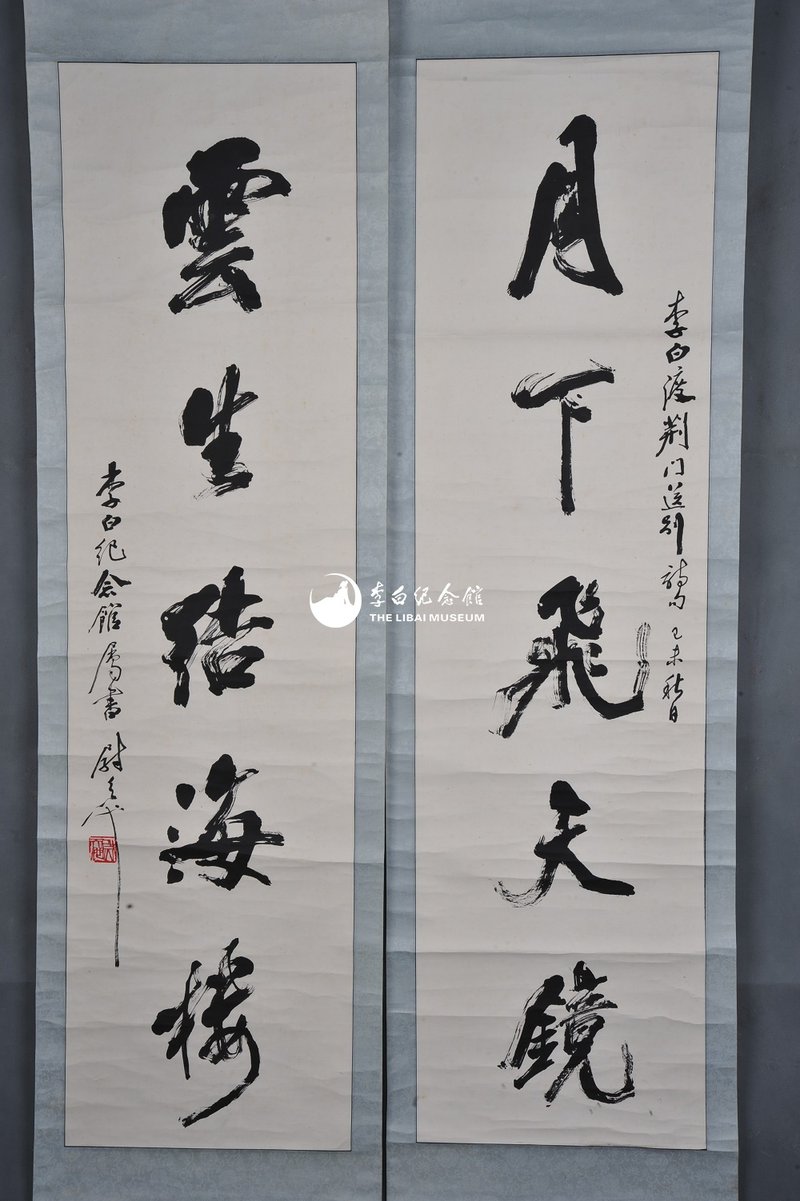 月下飛天鏡
李白渡荆门送别詩句 己未秋日
雲生結海樓
李白纪念館属書 尉天池
李白纪念館
THE LIBAI MUSEUM